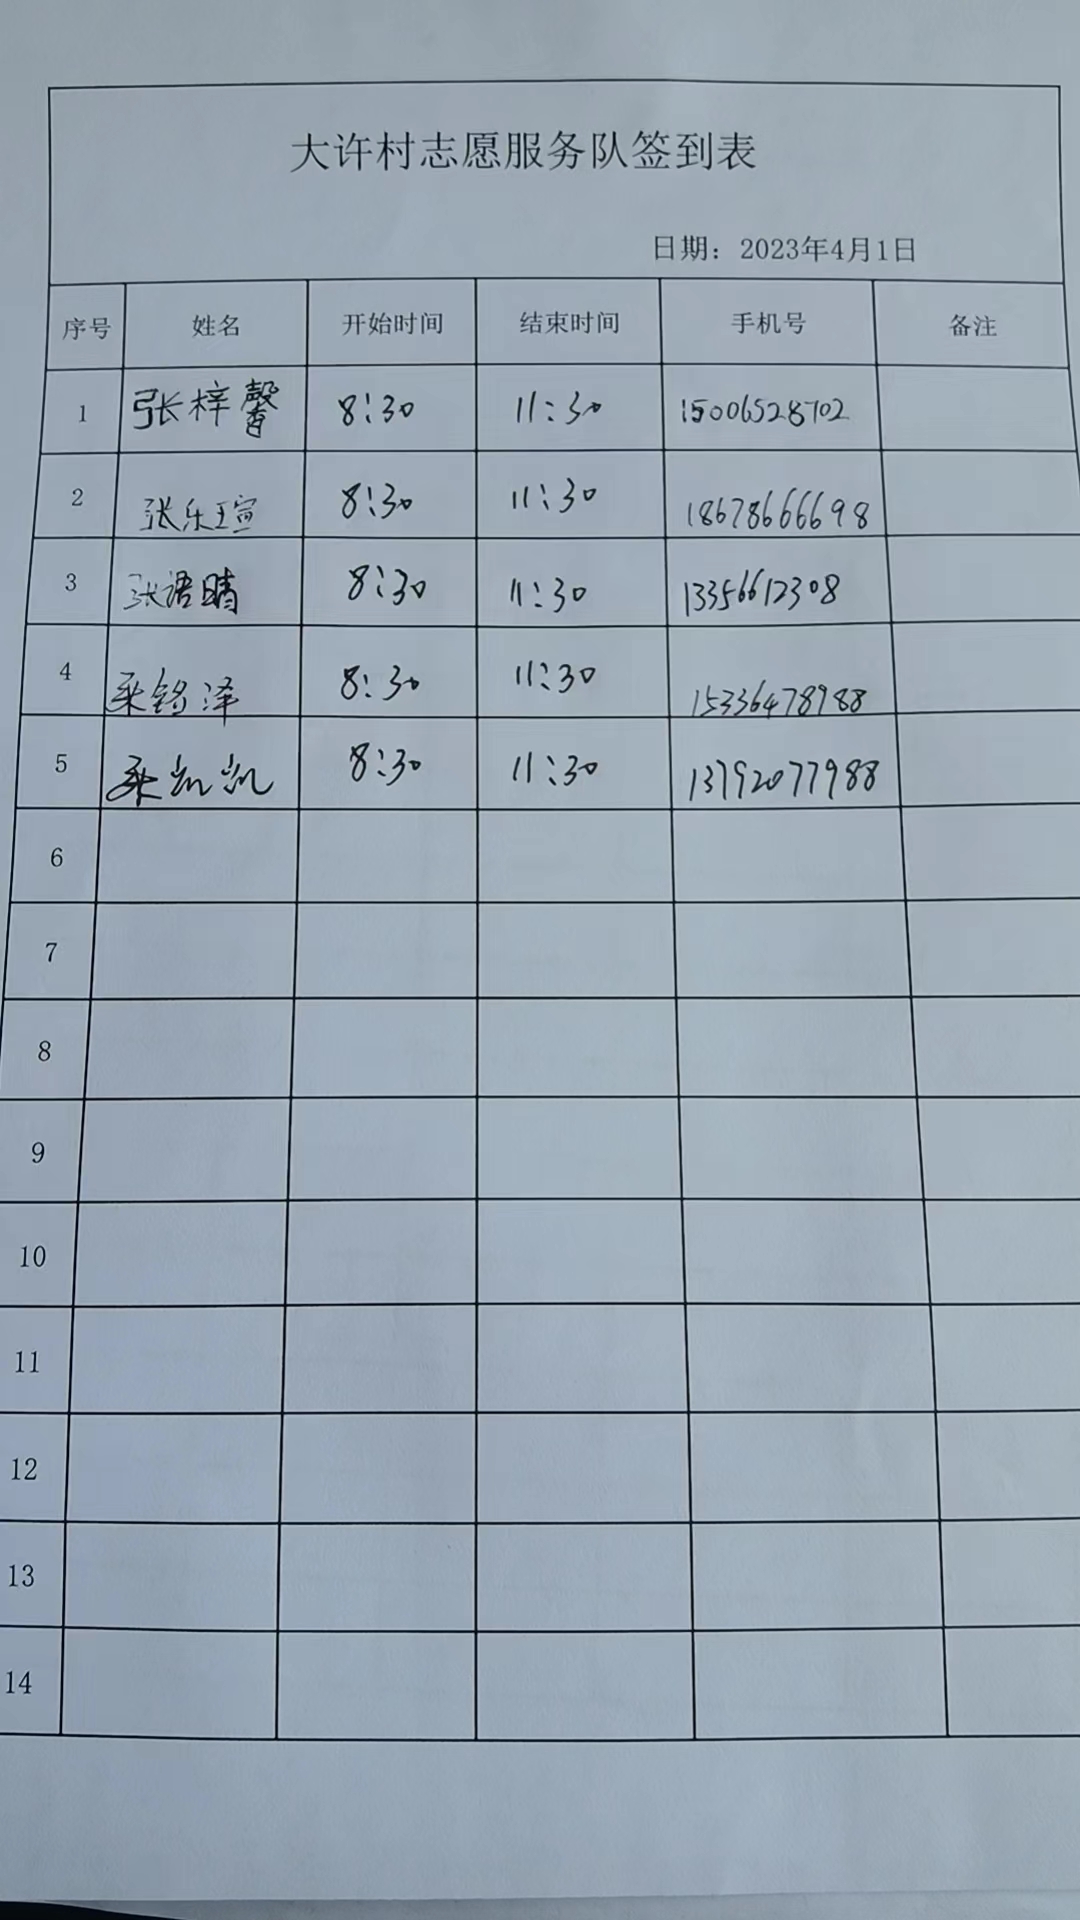 大许村志愿服务队签到表
日期：2023年4月1日
序号 姓名 开始时间 结束时间 手机号 备注
1 张梓馨 8:30 11:30 15006528702
2 张乐瑄 8:30 11:30 18678666698
3 张语晴 8:30 11:30 13356612308
4 铭泽 8:30 11:30 15336478988
5 凯凯 8:30 11:30 13792077988
6
7
8
9
10
11
12
13
14